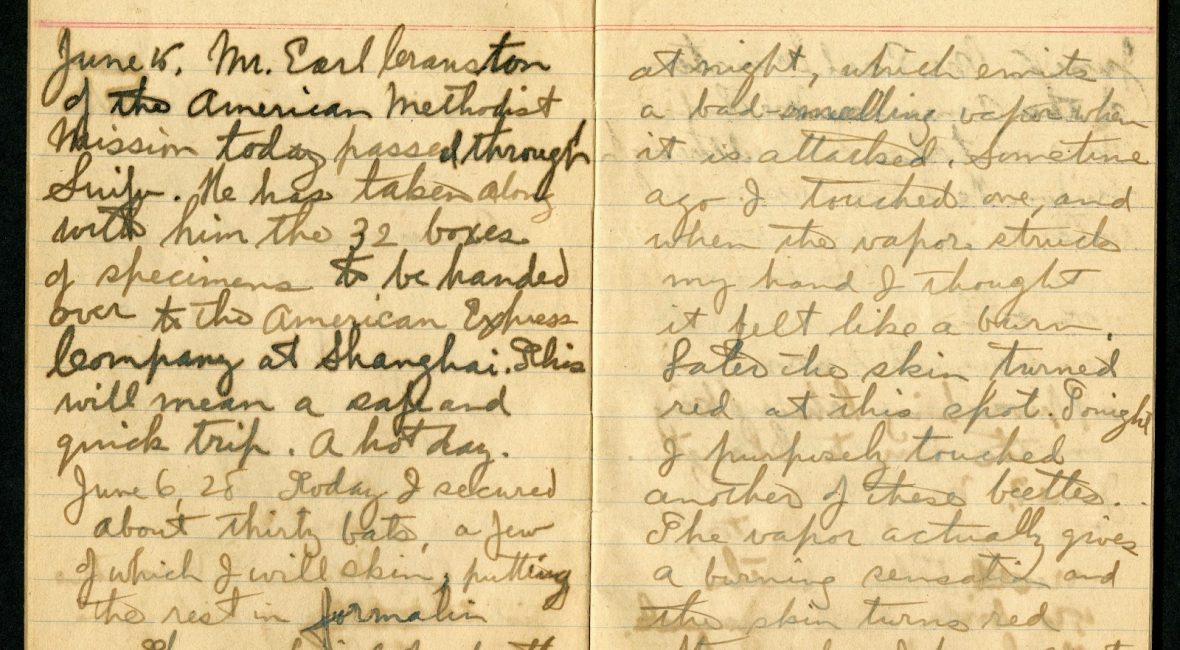 June 5, Mr. Earl Cranston
of the American Methodist
Mission today passed through
Suifu. He has taken along
with him the 32 boxes
of specimens to be handed
over to the American Express
Company at Shanghai. This
will mean a safe and
quick trip. A hot day.
June 6, 28 Today I secured
about thirty bats, a few
of which I will skin, putting
the rest in formalin
at night, which emits
a bad-smelling vapor when
it is attacked. Sometime
ago I touched one, and
when the vapor struck
my hand I thought
it felt like a burn.
Later the skin turned
red at this spot. Tonight
I purposely touched
another of these beetles.
The vapor actually gives
a burning sensation and
the skin turns red